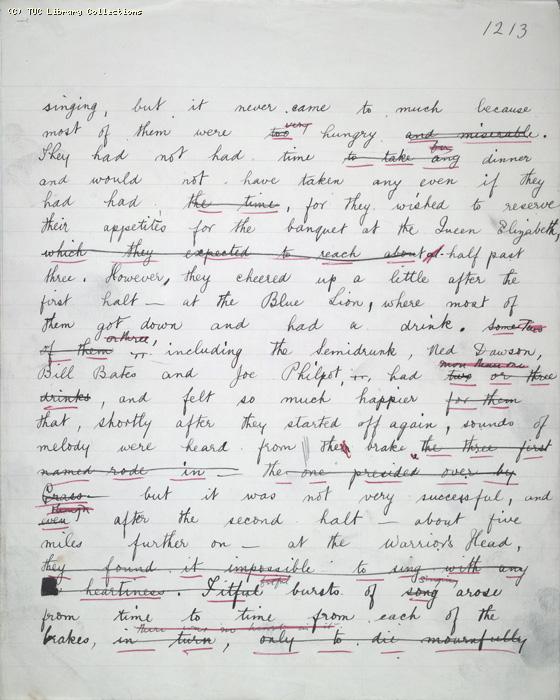 (C) TUC Library Collections
1213
singing, but it never came to much because
very
most of them were too hungry and miserable.
They had not had time to take any dinner
and would not have taken any even if they
had had the time, for they wished to reserve
their appetites for the banquet at the Queen Elizabeth,
which they expected to reach about half past
three. However, they cheered up a little after the
first halt — at the Blue Lion, where most of
them got down and had a drink. Some two
or three
of them, including the Semidrunk, Ned Dawson,
more than one
Bill Bates and Joe Philpot, had two or three
drinks, and felt so much happier for them
that, shortly after they started off again, sounds of
melody were heard from the brake the three first
named rode in — the one presided over by
Crass — but it was not very successful, and
though
even after the second halt — about five
miles further on — at the Warrior's Head,
they found it impossible to sing with any
heartiness. Fitful bursts of song arose
singing
from time to time from each of the
there was no heart in it
brakes, in turn, only to die mournfully